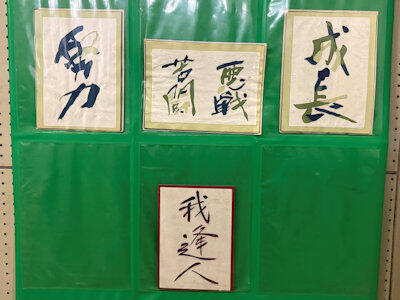 努力
悪戦
苦闘
成長
我逢人